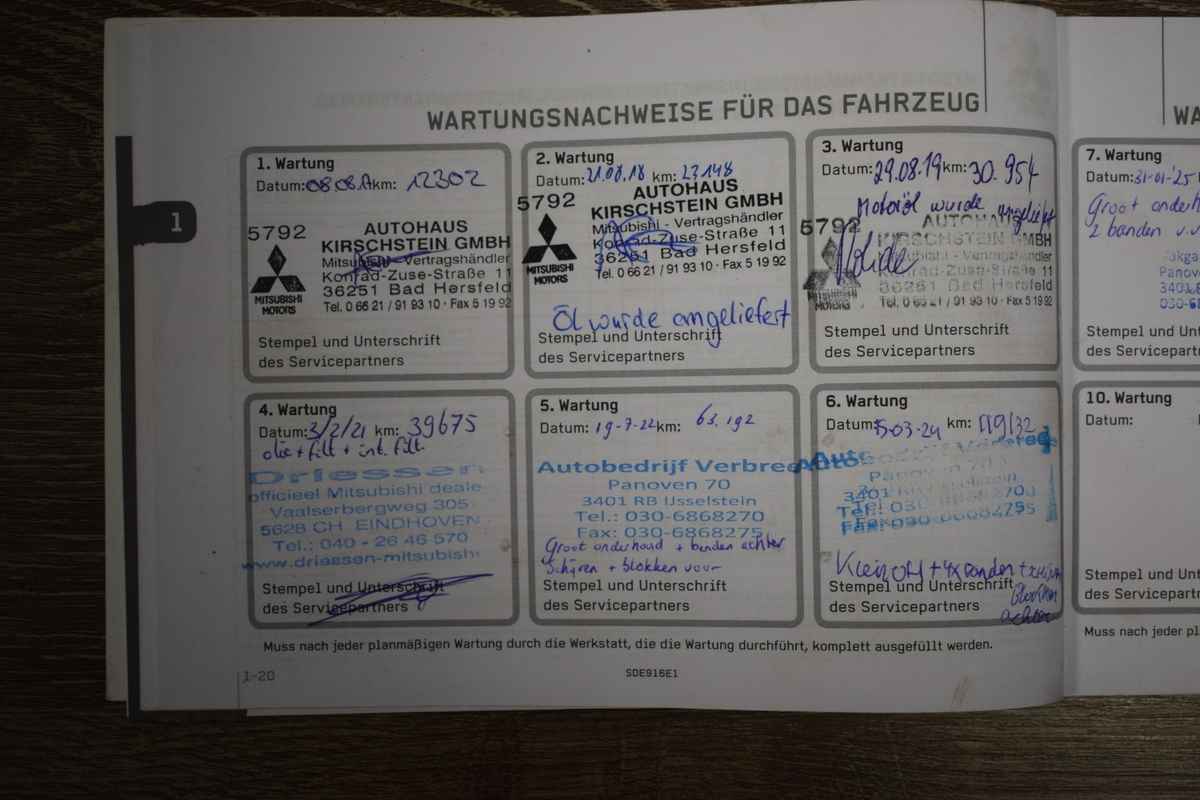 WARTUNGSNACHWEISE FÜR DAS FAHRZEUG
WA
1
1. Wartung
Datum: 08.08.17 km: 12302
5792
AUTOHAUS
KIRSCHSTEIN GMBH
Mitsubishi - Vertragshändler
Konrad-Zuse-Straße 11
36251 Bad Hersfeld
Tel. 0 66 21 / 91 93 10 · Fax 5 19 92
MITSUBISHI
MOTORS
Stempel und Unterschrift
des Servicepartners
2. Wartung
Datum: 21.08.18 km: 23148
5792
AUTOHAUS
KIRSCHSTEIN GMBH
Mitsubishi - Vertragshändler
Konrad-Zuse-Straße 11
36251 Bad Hersfeld
Tel. 0 66 21 / 91 93 10 · Fax 5 19 92
MITSUBISHI
MOTORS
Öl wurde angeliefert
Stempel und Unterschrift
des Servicepartners
3. Wartung
Datum: 29.08.19 km: 30.954
Motoröl wurde angeliefert
5792
AUTOHAUS
KIRSCHSTEIN GMBH
Mitsubishi - Vertragshändler
Konrad-Zuse-Straße 11
36251 Bad Hersfeld
Tel. 0 66 21 / 91 93 10 · Fax 5 19 92
MITSUBISHI
MOTORS
Stempel und Unterschrift
des Servicepartners
7. Wartung
Datum: 31-01-25
Groot onderh
2 banden v.v
Panov
3401
030-6
Stempel und Unt
des Servicepartn
4. Wartung
Datum: 3/2/21 km: 39675
olie + filt + int. filt.
Driessen
officieel Mitsubishi deale
Vaalserbergweg 305
5628 CH EINDHOVEN
Tel.: 040 - 26 46 570
www.driessen-mitsubishi
Stempel und Unterschrift
des Servicepartners
5. Wartung
Datum: 19-7-22 km: 63.192
Autobedrijf Verbree
Panoven 70
3401 RB IJsselstein
Tel.: 030-6868270
Fax: 030-6868275
Groot onderhoud + banden achter
Schijven + blokken voor
Stempel und Unterschrift
des Servicepartners
6. Wartung
Datum: 5-03-24 km: 119132
Panoven 70
Tel.: 030
Fax: 030-6868275
Klein OH + 4x banden +
Blokken
achter
Stempel und Unterschrift
des Servicepartners
10. Wartung
Datum:
Stempel und Unt
des Servicepartn
Muss nach jeder planmäßigen Wartung durch die Werkstatt, die die Wartung durchführt, komplett ausgefüllt werden.
Muss nach jeder pl
1-20
SDE916E1